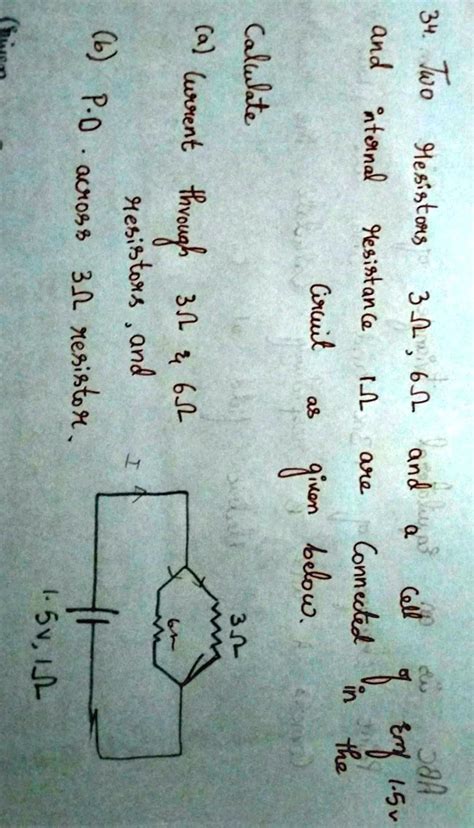 34. Two resistors 3Ω, 6Ω and a cell of Emf 1.5v
and internal resistance 1Ω are connected in the
circuit as given below.
Calculate
(a) Current through 3Ω & 6Ω
resistors, and
(b) P.D. across 3Ω resistor.
3Ω
6Ω
I
1.5v, 1Ω